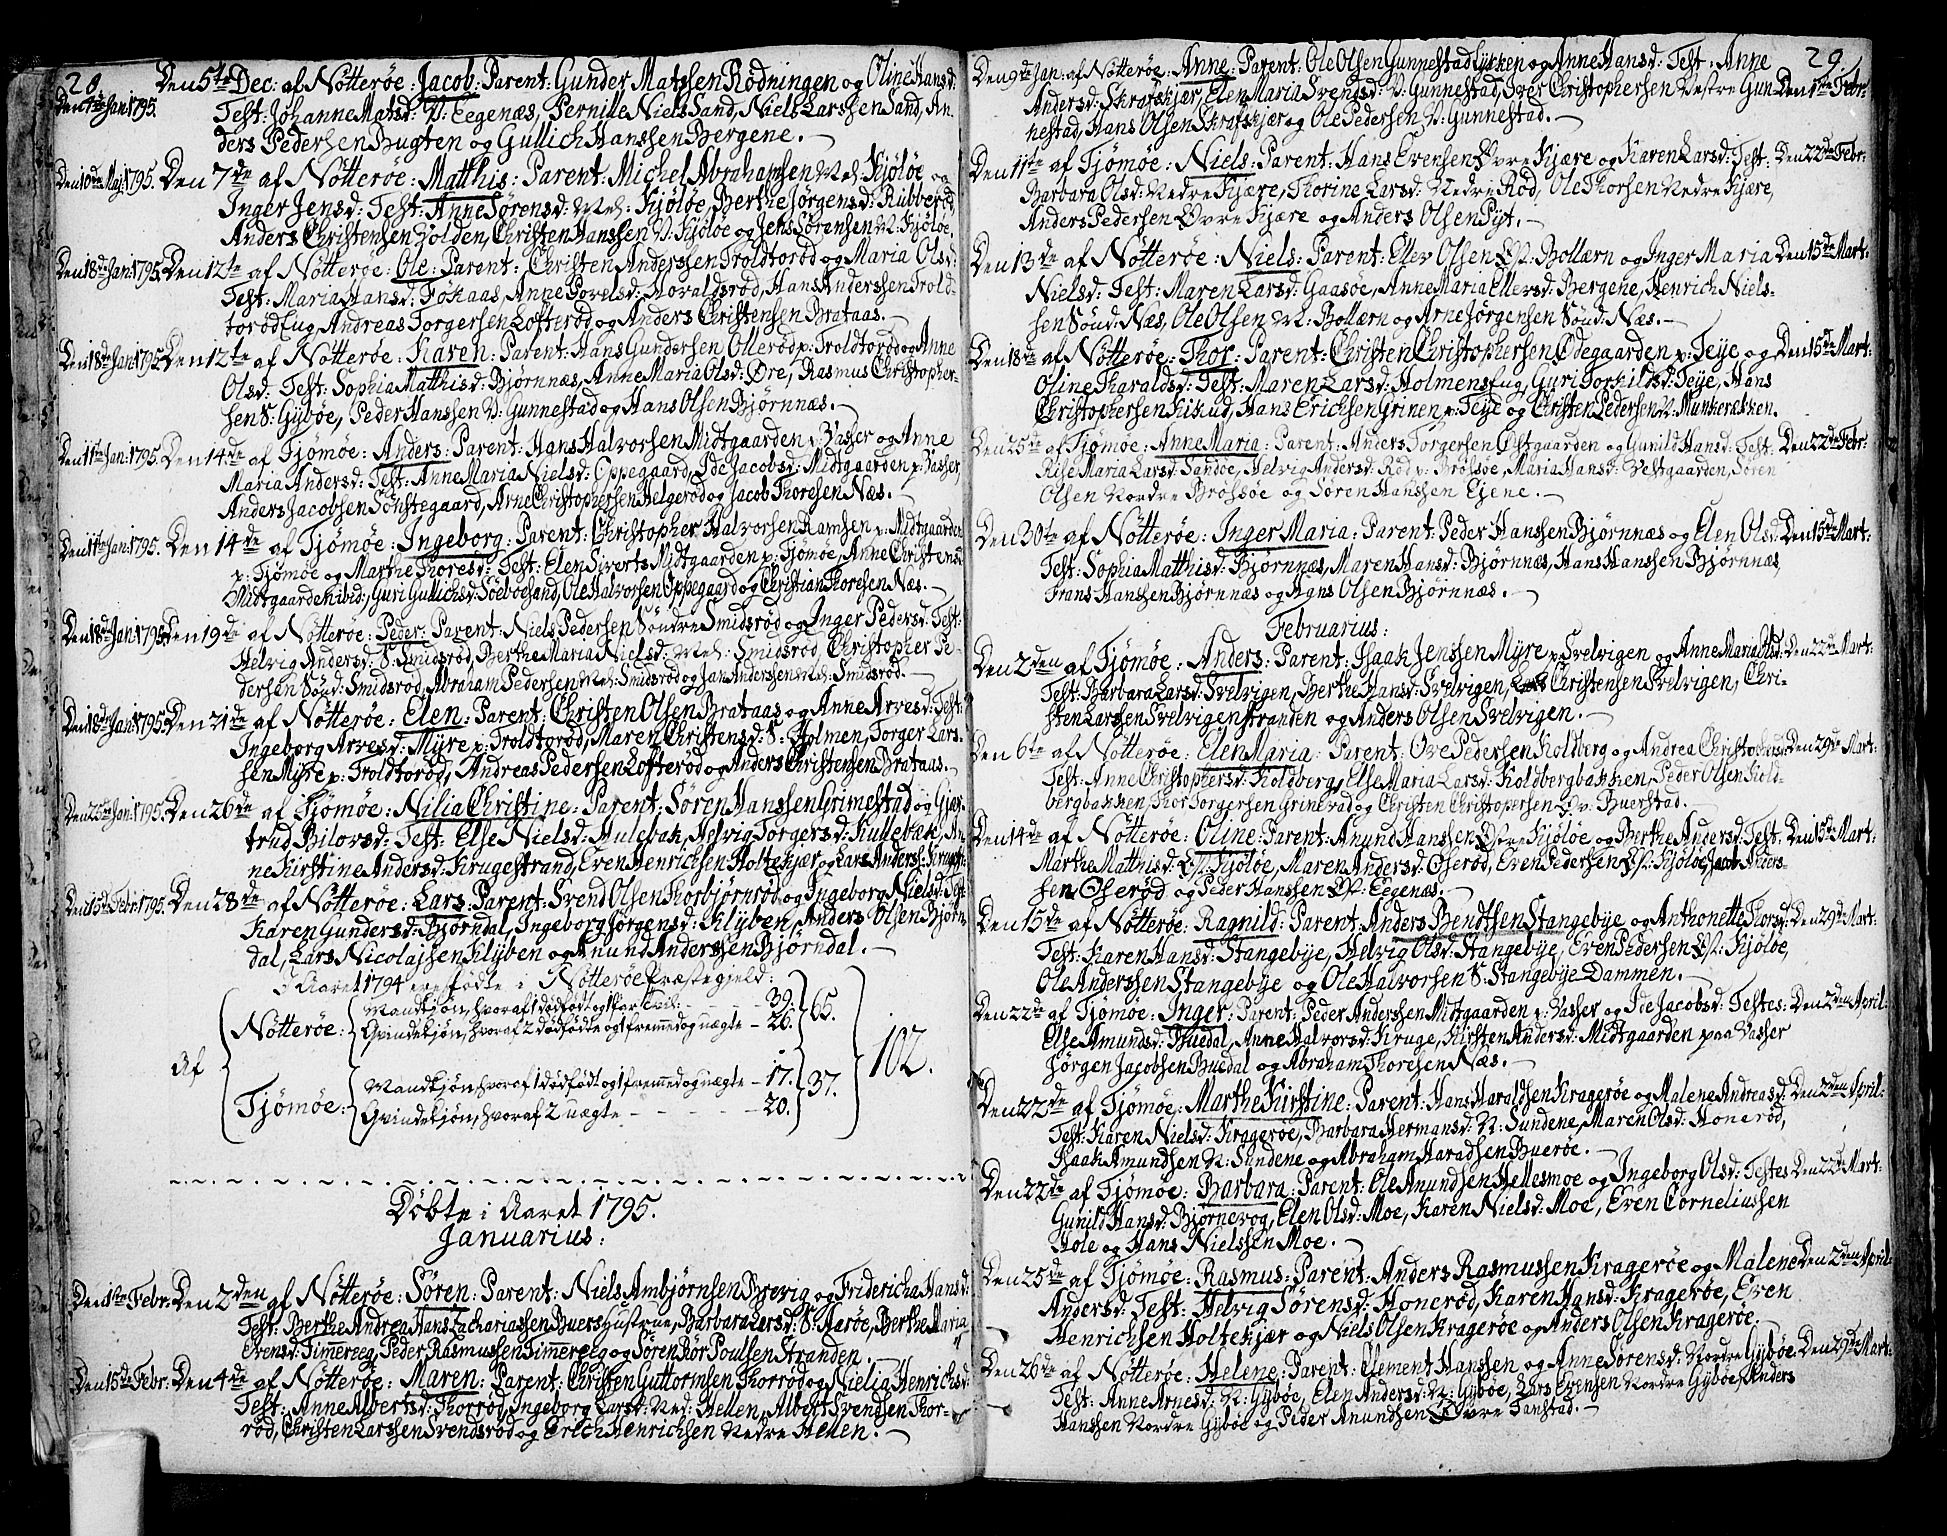 28.
Den 5te Dec: af Nötterøe: Jacob: Parent: Gunder Matssen Rödningen og Oline Hansd:
Den 1te Jan: 1795.
Test: Johanne Matsd: V: Eegenæs, Pernille Niels Sand, Niels Larssen Sand, An-
ders Pedersen Bugten og Gullich Hanssen Bergene. –
Den 10de Maj: 1795. Den 7de af Nötterøe: Matthis: Parent: Michel Abrahamsen Mel: Kjøløe og
Inger Jensd: Test: Anne Sørensd: Mel: Kjøløe, Berthe Jørgensd: Rubberød,
Anders Christensen Holden, Christen Hanssen V: Kjøløe og Jens Sørensen N: Kjøløe.
Den 18de Jan: 1795. Den 12te af Nötterøe: Ole: Parent: Christen Anderssen Troldtorød og Maria Olsd:
Test: Maria Hansd: Føkaas, Anne Povelsd: Horaldsrød, Hans Anderssen Trold-
torød Eng, Andreas Torgersen Lofterød og Anders Christensen Brataas. –
Den 18de Jan: 1795. Den 12te af Nötterøe: Karen: Parent: Hans Gundersen Ollerød p: Troldtorød og Anne
Olsd: Test: Sophia Matthisd: Bjørnnæs, Anne Maria Olsd: Øre, Rasmus Christopher-
sen S: Gybøe, Peder Hanssen V: Gunnestad og Hans Olsen Bjørnnæs. –
Den 11te Jan: 1795. Den 14de af Tjømøe: Anders: Parent: Hans Halvorsen Midtgaarden p: Vasser og Anne
Maria Andersd: Test: Anne Maria Nielsd: Oppegaard, Ide Jacobsd: Midtgaarden p: Vasser,
Anders Jacobsen Sønstegaard, Arne Christophersen Helgerød og Jacob Thoresen Næs. –
Den 11te Jan: 1795. Den 14de af Tjømøe: Ingeborg: Parent: Christopher Halvorsen Ramsen p: Midtgaarden
p: Tjømøe og Marthe Thoresd: Test: Elen Siverts Midtgaarden p: Tjømøe, Anne Christensd:
Midtgaarden ibid:, Guri Gullichsd: Söeboesand, Ole Halvorsen Oppegaard og Christian Thoresen Næs. –
Den 18de Jan: 1795. Den 19de af Nötterøe: Peder: Parent: Niels Pedersen Søndre Smidsrød og Inger Pedersd: Test:
Helvig Andersd: S: Smidsrød, Berthe Maria Nielsd: Mel: Smidsrød, Christopher Pe-
dersen Sønd: Smidsrød, Abraham Pedersen Mel: Smidsrød og Jan Anderssen Mel: Smidsrød. –
Den 18de Jan: 1795. Den 21de af Nötterøe: Elen: Parent: Christen Olsen Brataas og Anne Arvesd: Test:
Ingeborg Arvesd: Myre p: Troldtorød, Maren Christensd: S: Holmen, Torger Lars-
sen Myre p: Troldtorød, Andreas Pedersen Lofterød og Anders Christensen Brataas. –
Den 25de Jan: 1795. Den 26de af Tjømøe: Nilia Christine: Parent: Søren Hanssen Grimestad og Gjær-
trud Bilovsd: Test: Else Nielsd: Hulebak, Helvig Torgersd: Kullebæk, An-
ne Kirstine Andersd: Krugestrand, Even Henrichsen Holtekjær og Lars Anders:
Den 15de Febr: 1795. Den 28de af Nötterøe: Lars: Parent: Svend Olsen Thorbjørnrød og Ingeborg Nielsd: Test:
Karen Gundersd: Bjørndal, Ingeborg Jørgensd: Klyben, Anders Olsen Bjørn-
dal, Lars Nicolajsen Klyben og Anund Anderssen Bjørndal. –
I Aaret 1794 ere födte i Nötterøe Præstegjeld:
Af
Nötterøe: Mandkjøn, hvoraf 1 dödfödt og 1 par Tvil: – – – 39.
Qvindekjøn, hvoraf 2 dödfödte og 1 fremmed og uægte – 26. 65.
Tjömöe: Mandkjøn, hvoraf 1 dödfödt og 1 fremmed og uægte – 17.
Qvindekjøn, hvoraf 2 uægte – – – – – 20. 37.
102.
Döbte i Aaret 1795.
Januarius:
Den 1te Febr: Den 2den af Nötterøe: Søren: Parent: Niels Ambjørnsen Brevig og Fridericha Hansd:
Test: Berthe Andrea Hans Zachariassen Buers Hustrue, Barbara Larsd: S: Aarøe, Berthe Maria
Evensd: Timereeg, Peder Rasmussen Timereeg og Søren Rør Poulsen Stranden.
Den 15de Febr: Den 4de af Nötterøe: Maren: Parent: Christen Guttormsen Thorrød og Nielia Henrichsd:
Test: Anne Albertsd: Thorrød, Ingeborg Larsd: Ned: Hellen, Albert Svendsen Thor-
rød, Christen Larssen Svendsrød og Erich Henrichsen Nedre Hellen. –
29.
Den 9de Jan: af Nötterøe: Anne: Parent: Ole Olsen Gunnestad Lykken og Anne Hansd: Test: Anne
Andersd: Skrafskjær, Elen Maria Svensd: V: Gunnestad, Iver Christophersen Vestre Gun- Den 1te Febr:
nestad, Hans Olsen Skrafskjær og Ole Pedersen V: Gunnestad. –
Den 11te af Tjømøe: Niels: Parent: Hans Evensen Øvre Kjære og Karen Larsd: Test: Den 22de Febr:
Barbara Olsd: Nedre Kjære, Thorine Larsd: Nedre Rød, Ole Thorsen Nedre Kjære,
Anders Pedersen Øvre Kjære og Anders Olsen Pyt. –
Den 13de af Nötterøe: Niels: Parent: Ellev Olsen Øst: Bollærn og Inger Maria Den 15de Mart:
Nielsd: Test: Maren Larsd: Gaasøe, Anne Maria Ellevsd: Bergene, Henrich Niels-
sen Sønd: Næs, Ole Olsen M: Bollærn og Arne Jørgensen Sønd: Næs. –
Den 18de af Nötterøe: Thor: Parent: Christen Christophersen Ødegaarden p: Teje og Den 15de Mart:
Oline Tharaldsd: Test: Maren Larsd: Holmens Eng, Guri Torkildsd: Teje, Hans
Christophersen Kikud, Hans Erichsen Grinen p: Teje og Christen Pedersen N: Munkerækken.
Den 25de af Tjømøe: Anne Maria: Parent: Anders Torgersen Østgaarden og Gunild Hansd: Test: Den 22de Febr:
Rise Maria Larsd: Sandøe, Helvig Andersd: Rød p: Brøtsøe, Maria Hansd: Vestgaarden, Søren
Olsen Nordre Brøtsøe og Søren Hanssen Ejene. –
Den 30te af Nötterøe: Inger Maria: Parent: Peder Hanssen Bjørnnæs og Elen Olsd: Den 15de Mart:
Test: Sophia Matthisd: Bjørnnæs, Maren Hansd: Bjørnnæs, Hans Hanssen Bjørnnæs,
Frans Hanssen Bjørnnæs og Agns Olsen Bjørnnæs. –
Februarius:
Den 2den af Tjømøe: Anders: Parent: Isaak Jenssen Myre p: Svelvigen og Anne Maria Olsd: Den 22de Mart:
Test: Barbara Larsd: Svelvigen, Berthe Hansd: Svelvigen, Christensen Svelvigen, Chri-
sten Larssen Svelvigenstranden og Anders Olsen Svelvigen. –
Den 6te af Nötterøe: Elen Maria: Parent: Ove Pedersen Koldberg og Andrea Christophersd: Den 29de Mart:
Test: Anne Christophersd: Koldberg, Else Maria Larsd: Koldbergbakken, Peder Olsen Kold-
bergbakken, Thor Torgersen Grimerød og Christen Christophersen Øv: Buerstad.
Den 14de af Nötterøe: Oline: Parent: Anund Hanssen Østre Kjøløe og Berthe Andersd: Test: Den 15de Mart:
Marthe Matthisd: Øst: Kjøløe, Maren Andersd: Oserød, Even Pedersen Øst: Kjøløe, Anders-
sen Oserød og Peder Hanssen Øst: Eegenæs. –
Den 15de af Nötterøe: Ragnild: Parent: Anders Bendtsen Stangebye og Anthonette Thorsd: Den 29de Mart:
Test: Karen Hansd: Stangebye, Helvig Olsd: Stangebye, Even Pedersen Øst: Kjøløe,
Ole Anderssen Stangebye og Ole Halvorsen S: Stangebye Dammen. –
Den 22de af Tjømøe: Inger: Parent: Peder Anderssen Midtgaarden p: Vasser og Ide Jacobsd: Testes: Den 2den April:
Else Amundsd: Buedal, Anne Halvorsd: Kruge, Kirsten Andersd: Midtgaarden paa Vasser
Jørgen Jacobsen Buedal og Abraham Thoresen Næs. –
Den 22de af Tjømøe: Marthe Kirstine: Parent: Hans Haraldsen Kragerøe og Malene Andreasd: Den 2den April:
Test: Karen Nielsd: Kragerøe, Barbara Hermansd: N: Sundene, Maren Olsd: Honerød,
Isaak Amundsen N: Sundene og Abraham Haradsen Buerøe. –
Den 22de af Tjømøe: Barbara: Parent: Ole Anundsen Hellesmoe og Ingeborg Olsd: Testes Den 22de Mart:
Gunild Hansd: Bjørnevog, Elen Olsd: Moe, Karen Nielsd: Moe, Even Corneliussen
Hole og Hans Nielssen Moe. –
Den 25de af Tjømøe: Rasmus: Parent: Anders Rasmussen Kragerøe og Malene Den 2den April:
Andersd: Test: Helvig Sørensd: Honerød, Karen Hansd: Kragerøe, Even
Henrichsen Holtekjær og Niels Olsen Kragerøe og Anders Olsen Kragerøe.
Den 26de af Nötterøe: Helene: Parent: Clement Hanssen og Anne Sørensd: Nordre Gybøe. Den 29de Mart:
Test: Anne Arnesd: N: Gybøe, Elen Andersd: N: Gybøe, Lars Evensen Nordre Gybøe, Anders
Hanssen Nordre Gybøe og Peder Anundsen Øvre Tanstad. –